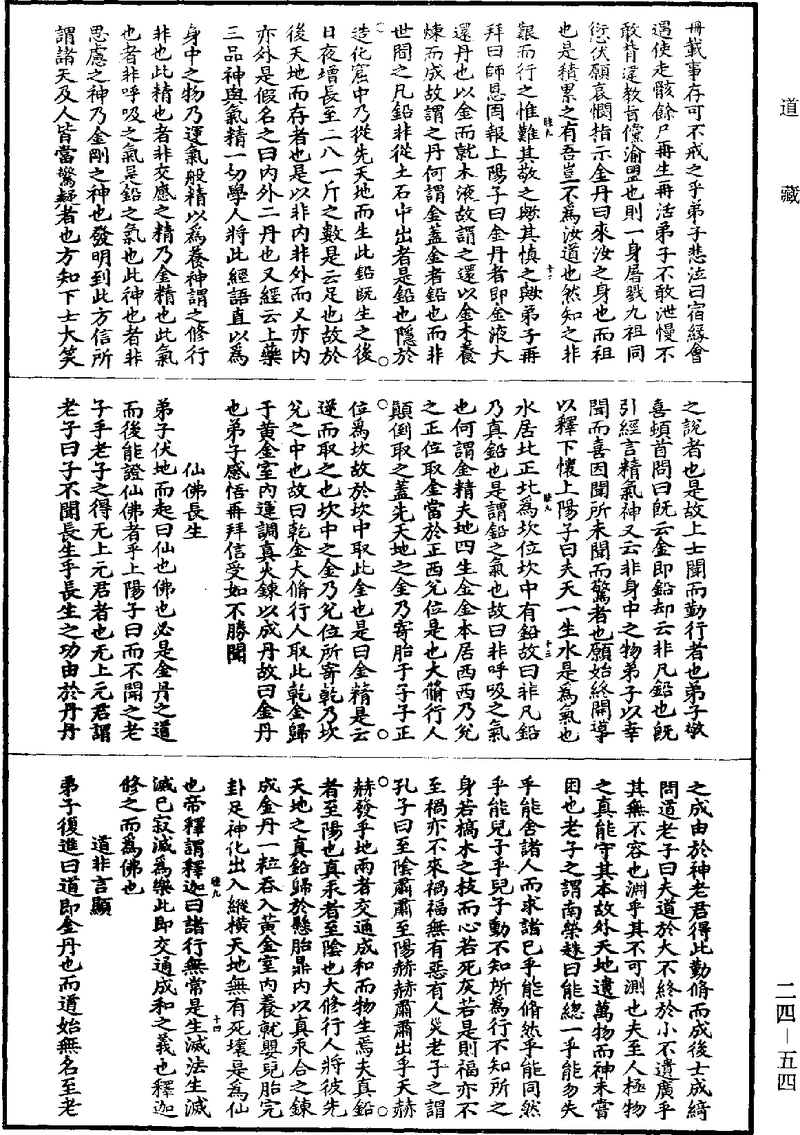 道藏
冊載事存可不戒之乎弟子悲泣曰宿緣會
遇使走骸餘尸再生再活弟子不敢泄慢不
敢背違教旨儻渝盟也則一身屠戮九祖同
愆伏願哀憫指示金丹曰來汝之身也而祖
也是積累之有吾豈不為汝道也然知之非
艱而行之惟難其敬之歟其慎之歟弟子再
拜曰師恩罔報上陽子曰金丹者即金液大
還丹也以金而就木液故謂之還以金木養
煉而成故謂之丹何謂金蓋金者鉛也而非
世間之凡鉛非從土石中出者是鉛也隱於
造化窟中乃從先天地而生此鉛既生之後
日夜增長至二八一斤之數是云足也故於
後天地而存者也是以非內非外而又亦內
亦外是假名之曰內外二丹也又經云上藥
三品神與氣精一切學人將此經語直以為
身中之物乃運氣般精以為養神謂之修行
非也此精也者非交應之精乃金精也此氣
也者非呼吸之氣是鉛之氣也此神也者非
思慮之神乃金剛之神也發明到此方信所
謂諸天及人皆當驚疑者也方知下士大笑
之說者也是故上士聞而勤行者也弟子欻
喜頓首問曰既云金即鉛却云非凡鉛也既
引經言精氣神又云非身中之物弟子以幸
聞而喜因聞所未聞而驚者也願始終開導
以釋下懷上陽子曰夫天一生水是為氣也
水居北正北為坎位坎中有鉛故曰非凡鉛
乃真鉛也是謂鉛之氣也故曰非呼吸之氣
也何謂金精夫地四生金金本居西西乃兌
之正位取金當於正西兌位是也大脩行人
顛倒取之蓋先天地之金乃寄胎于子子正
位為坎故於坎中取此金也是曰金精是云
逆而取之也坎中之金乃兌位所寄乾乃坎
兌之中也故曰乾金大脩行人取此乾金歸
于黃金室內運調真火鍊以成丹故曰金丹
也弟子感悟再拜信受如不勝聞
仙佛長生
弟子伏地而起曰仙也佛也必是金丹之道
而後能證仙佛者乎上陽子曰而不聞之老
子乎老子之得无上元君者也无上元君謂
老子曰子不聞長生乎長生之功由於丹丹
之成由於神老君得此勤脩而成後士成綺
問道老子曰夫道於大不終於小不遺廣乎
其無不容也淵乎其不可測也夫至人極物
之真能守其本故外天地遺萬物而神未嘗
困也老子之謂南榮趎曰能總一乎能勿失
乎能舍諸人而求諸己乎能翛然乎能同然
乎能兒子乎兒子動不知所為行不知所之
身若槁木之枝而心若死灰若是則福亦不
至禍亦不來禍福無有惡有人災老子之謂
孔子曰至陰肅肅至陽赫赫肅肅出乎天赫
赫發乎地兩者交通成和而物生焉夫真鉛
者至陽也真汞者至陰也大修行人將彼先
天地之真鉛歸於懸胎鼎內以真汞合之鍊
成金丹一粒吞入黃金室內養就嬰兒胎完
卦足神化出入縱橫天地無有死壞是為仙
也帝釋謂釋迦曰諸行無常是生滅法生滅
滅已寂滅為樂此即交通成和之義也釋迦
修之而為佛也
道非言顯
弟子復進曰道即金丹也而道始無名至老
二四—五四